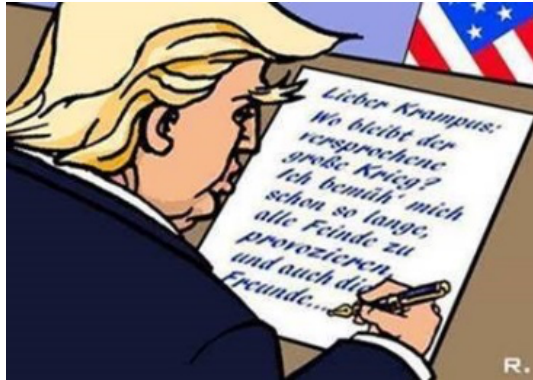 Lieber Krampus:
Wo bleibt der
versprochene
große Krieg?
Ich bemüh' mich
schon so lange,
alle Feinde zu
provozieren,
und auch die
Freunde...
R.